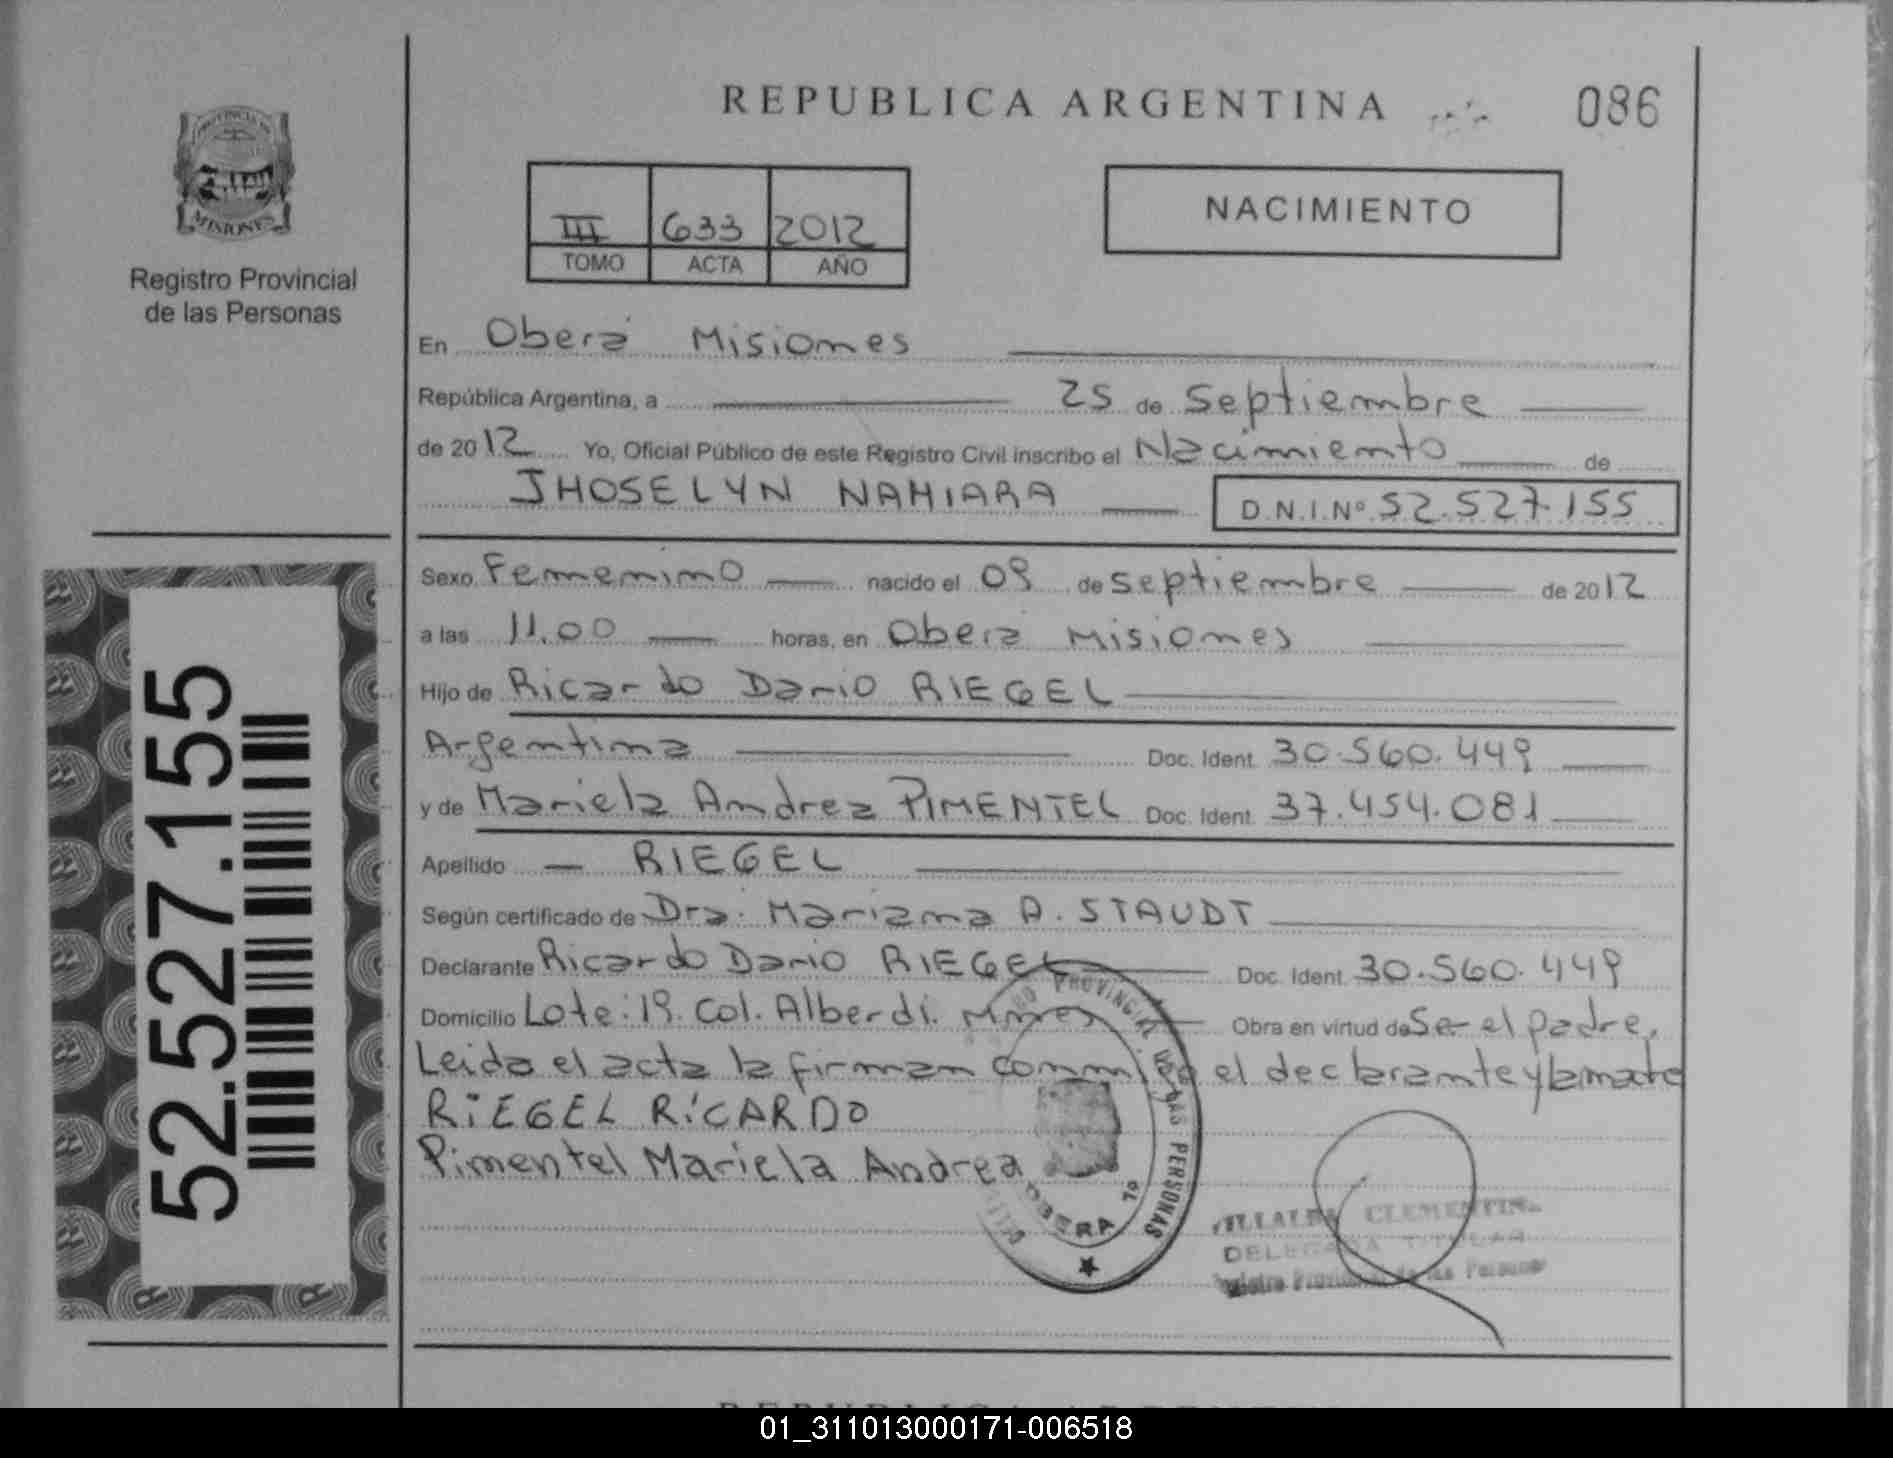 REPUBLICA ARGENTINA
086
PROVINCIA DE
MISIONES
Registro Provincial
de las Personas
III 633 2012
TOMO ACTA AÑO
NACIMIENTO
En Oberá Misiones
República Argentina, a 25 de Septiembre
de 2012 Yo, Oficial Público de este Registro Civil inscribo el Nacimiento de
JHOSELYN NAHIARA D.N.I.Nº 52.527.155
Sexo Femenino nacido el 09 de Septiembre de 2012
a las 11.00 horas, en Obera Misiones
Hijo de Ricardo Dario RIEGEL
Argentina Doc. Ident. 30.560.449
y de Mariela Andrea PIMENTEL Doc. Ident. 37.454.081
Apellido — RIEGEL
Según certificado de Dra. Mariana A. STAUDT
Declarante Ricardo Dario RIEGEL Doc. Ident. 30.560.449
Domicilio Lote: 19. Col. Alberdi. Mnes Obra en virtud de Ser el padre.
Leida el acta la firman conmigo el declarante y la madre
RIEGEL RICARDO
Pimentel Mariela Andrea
PROVINCIAL
LAS PERSONAS
OBERA
VILLALBA CLEMENTINA
DELEGADA TITULAR
Registro Provincial de las Personas
52.527.155
01_311013000171-006518